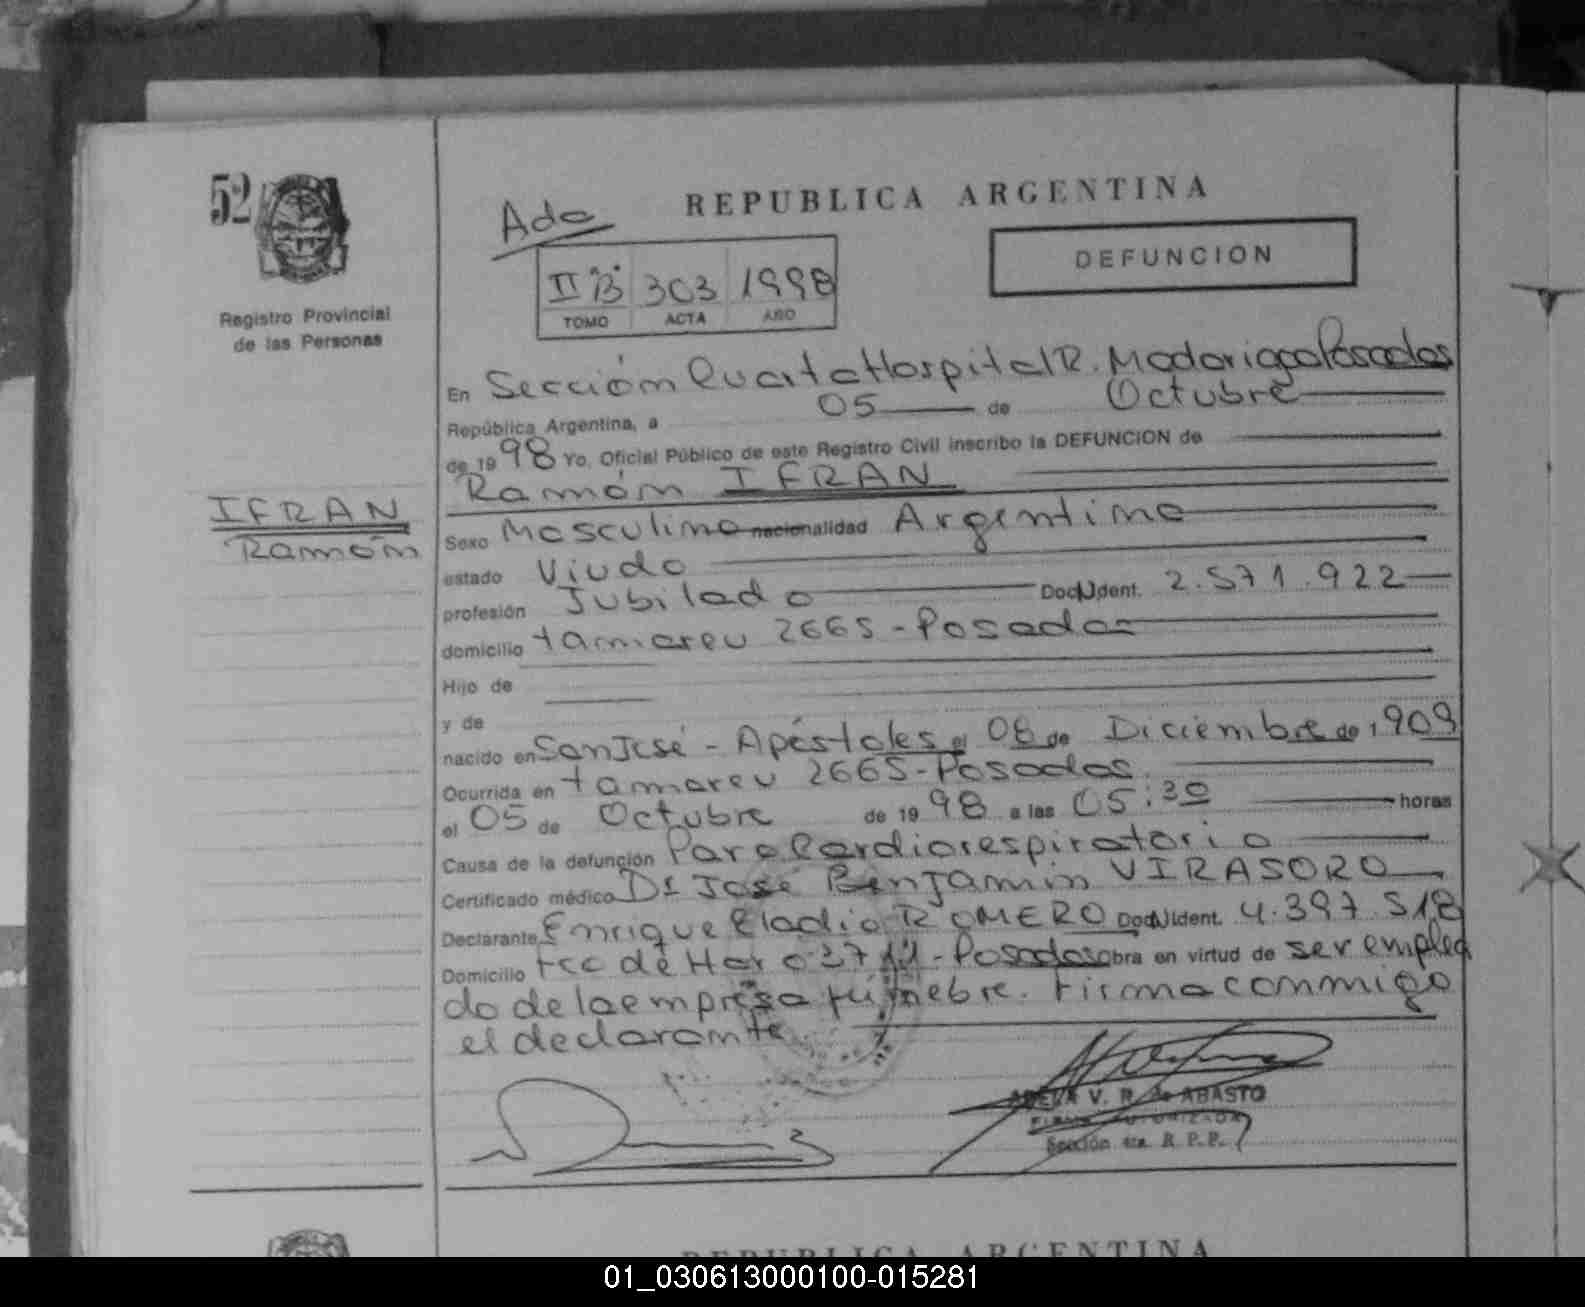 52
Registro Provincial
de las Personas
IFRAN
Ramón
REPUBLICA ARGENTINA
DEFUNCION
II "B" 303 1998
TOMO ACTA AÑO
En Sección Cuarta Hospital R. Madariaga Posadas
República Argentina, a 05 de Octubre
de 19 98 Yo, Oficial Público de este Registro Civil inscribo la DEFUNCION de
Ramón IFRAN
Sexo Masculino nacionalidad Argentina
estado Viudo
profesión Jubilado Doc. Ident. 2.571.922
domicilio Tamareu 2665 - Posadas
Hijo de
y de
nacido en San José - Apóstoles el 08 de Diciembre de 1909
Ocurrida en Tamareu 2665 - Posadas
el 05 de Octubre de 19 98 a las 05:30 horas
Causa de la defunción Paro Cardiorespiratorio
Certificado médico Dr José Benjamin VIRASORO
Declarante Enrique Eladio ROMERO Doc. Ident. 4.397.518
Domicilio Fco de Haro - Posadas obra en virtud de ser emplea
do de la empresa fúnebre. Firma conmigo
el declarante.
ADELA V. R. de ABASTO
FIRMA AUTORIZADA
Sección 4ta. R. P. P.
REPUBLICA ARGENTINA
01_030613000100-015281